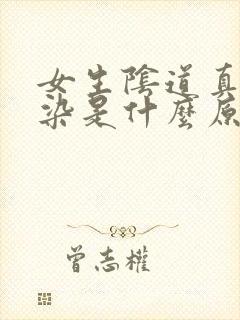 女生陰道真
染是什麼原
曾志權